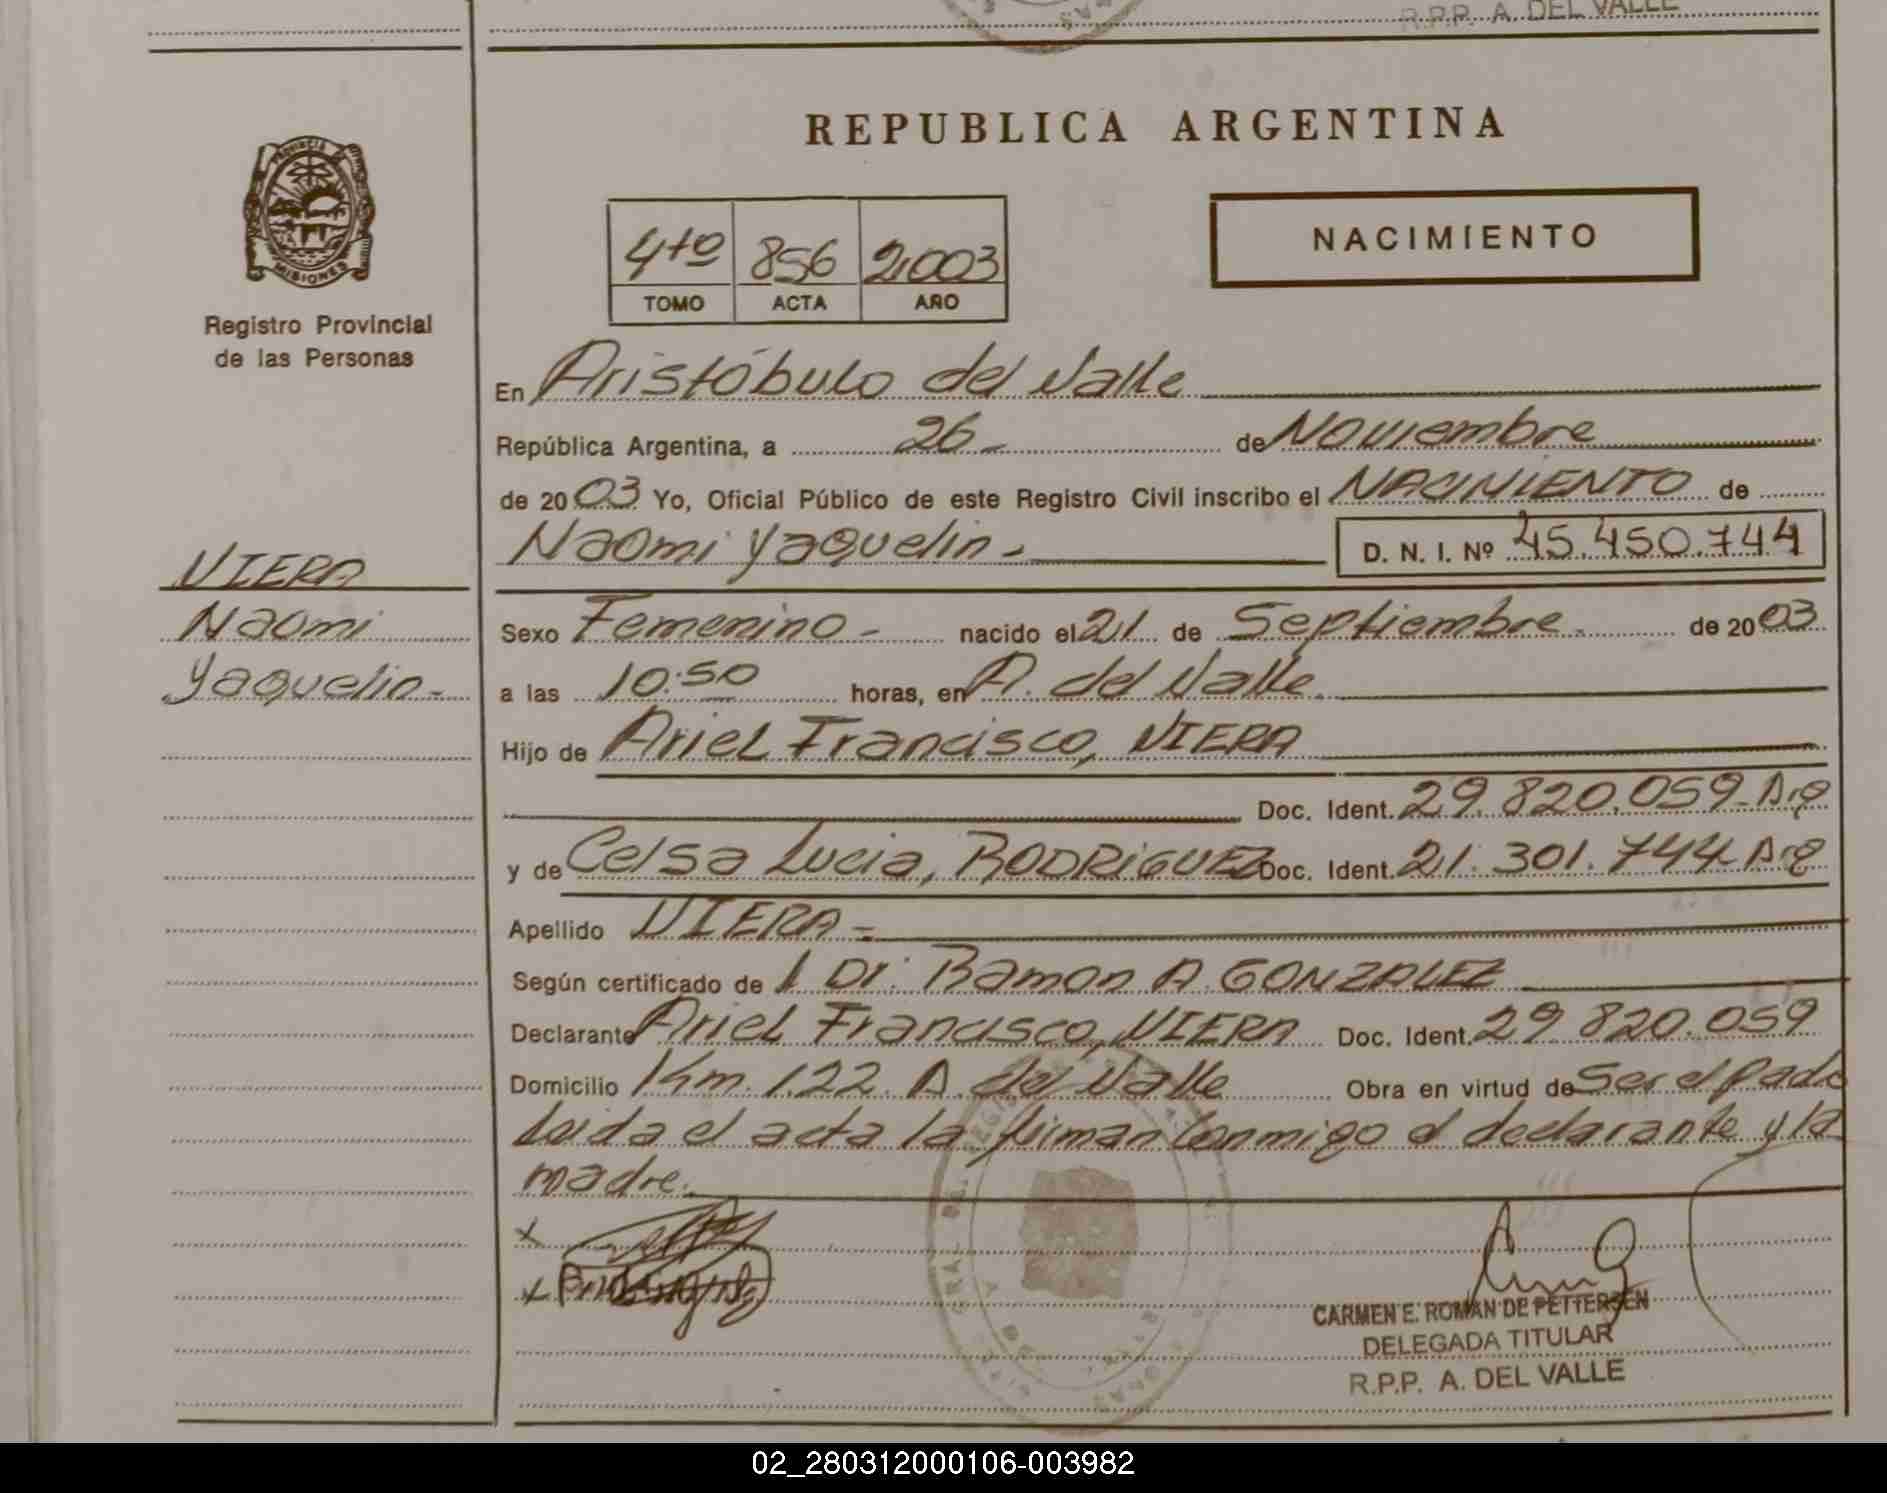 R.P.P. A. DEL VALLE
REPUBLICA ARGENTINA
PROVINCIA DE
MISIONES
Registro Provincial
de las Personas
4to 856 2.003
TOMO ACTA AÑO
NACIMIENTO
En Aristóbulo del Valle
República Argentina, a 26 de Noviembre
de 2003 Yo, Oficial Público de este Registro Civil inscribo el NACIMIENTO de
Naomi Yaquelin.- D. N. I. Nº 45.450.744
VIERA
Naomi
Yaquelin.-
Sexo Femenino - nacido el 21 de Septiembre. de 2003
a las 10:50 horas, en A. del Valle.
Hijo de Ariel Francisco, VIERA
Doc. Ident. 29.820.059-Arg
y de Celsa Lucia, RODRiGUEZ Doc. Ident. 21.301.744-Arg
Apellido VIERA-
Según certificado de l Dr. Ramon A. GONZALEZ
Declarante Ariel Francisco, VIERA Doc. Ident. 29.820.059
Domicilio Km. 1.22. A. del Valle Obra en virtud de Ser el Padre
Leida el acta la firman Conmigo el declarante y la
madre.
CARMEN E. ROMAN DE PETTERSEN
DELEGADA TITULAR
R.P.P. A. DEL VALLE
02_280312000106-003982